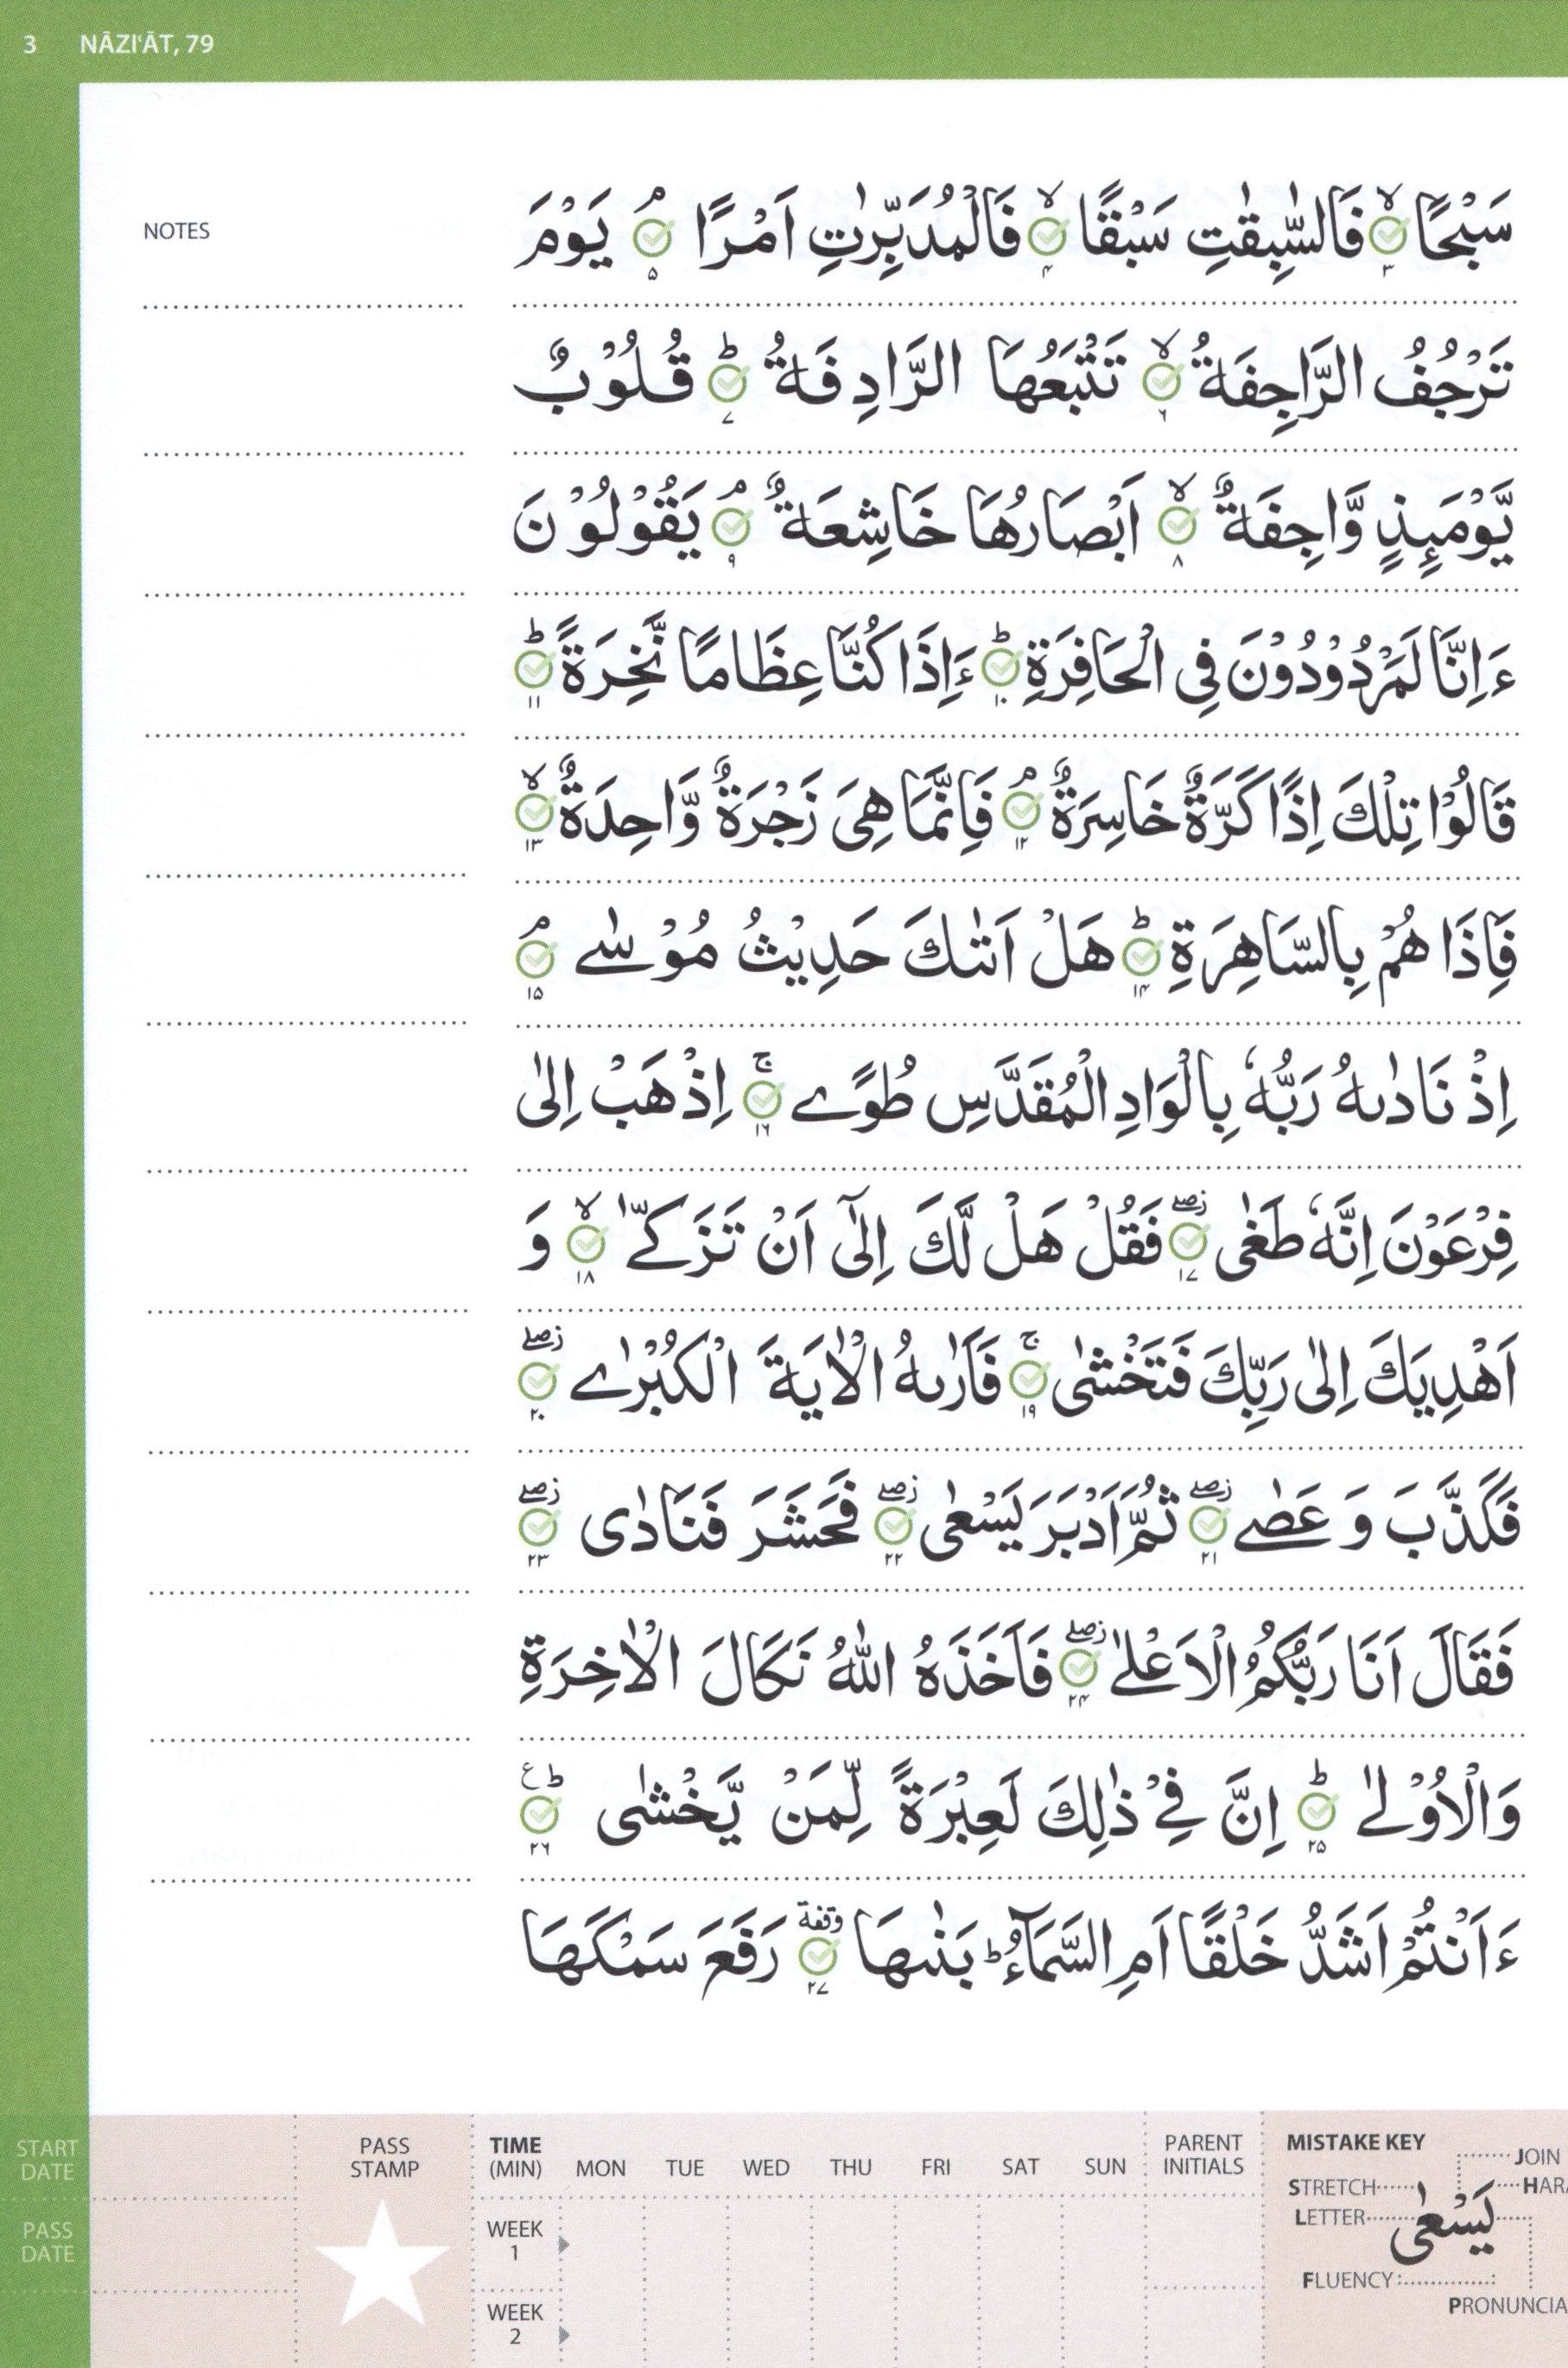 3 NÂZI‘ÂT, 79
NOTES
سَبْحًا ۙ۳ فَالسّٰبِقٰتِ سَبْقًا ۙ۴ فَالْمُدَبِّرٰتِ اَمْرًا ۘ۵ يَوْمَ
تَرْجُفُ الرَّاجِفَةُ ۙ۶ تَتْبَعُهَا الرَّادِفَةُ ؕ۷ قُلُوْبٌ
يَّوْمَىِٕذٍ وَّاجِفَةٌ ۙ۸ اَبْصَارُهَا خَاشِعَةٌ ۘ۹ يَقُوْلُوْنَ
ءَاِنَّا لَمَرْدُوْدُوْنَ فِى الْحَافِرَةِ ؕ۱۰ ءَاِذَا كُنَّا عِظَامًا نَّخِرَةً ؕ۱۱
قَالُوْا تِلْكَ اِذًا كَرَّةٌ خَاسِرَةٌ ۘ۱۲ فَاِنَّمَا هِىَ زَجْرَةٌ وَّاحِدَةٌ ۙ۱۳
فَاِذَا هُمْ بِالسَّاهِرَةِ ؕ۱۴ هَلْ اَتٰٮكَ حَدِيْثُ مُوْسٰے ۘ۱۵
اِذْ نَادٰٮهُ رَبُّهٗ بِالْوَادِ الْمُقَدَّسِ طُوًے ۚ۱۶ اِذْهَبْ اِلٰى
فِرْعَوْنَ اِنَّهٗ طَغٰى ۖ۱۷ فَقُلْ هَلْ لَّكَ اِلٰٓى اَنْ تَزَكّٰے ۙ۱۸ وَ
اَهْدِيَكَ اِلٰى رَبِّكَ فَتَخْشٰى ۚ۱۹ فَاَرٰٮهُ الْاٰيَةَ الْكُبْرٰے ۖ۲۰
فَكَذَّبَ وَ عَصٰے ۖ۲۱ ثُمَّ اَدْبَرَ يَسْعٰى ۖ۲۲ فَحَشَرَ فَنَادٰى ۖ۲۳
فَقَالَ اَنَا رَبُّكُمُ الْاَعْلٰے ۖ۲۴ فَاَخَذَهُ اللّٰهُ نَكَالَ الْاٰخِرَةِ
وَالْاُوْلٰے ؕ۲۵ اِنَّ فِےْ ذٰلِكَ لَعِبْرَةً لِّمَنْ يَّخْشٰى ؕع۲۶
ءَاَنْتُمْ اَشَدُّ خَلْقًا اَمِ السَّمَآءُ ؕ بَنٰٮهَا وقفة۲۷ رَفَعَ سَمْكَهَا
START DATE
PASS DATE
PASS STAMP
TIME (MIN) MON TUE WED THU FRI SAT SUN PARENT INITIALS
WEEK 1
WEEK 2
MISTAKE KEY
JOIN
STRETCH HARA
LETTER يَسْعٰى
FLUENCY
PRONUNCIA